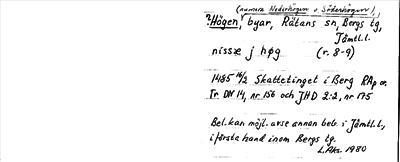 (numera Nederhögen o. Söderhögen),
?Högen, byar, Rätans sn, Bergs tg,
Jämtl.l.
nissæ j høg (r. 8-9)
1485 16/2 Skattetinget i Berg RAp or.
Tr DN 14, nr 156 och JHD 2:2, nr 175
Bel. kan möjl. avse annan beb. i Jämtl.l.,
i första hand inom Bergs tg.
1980